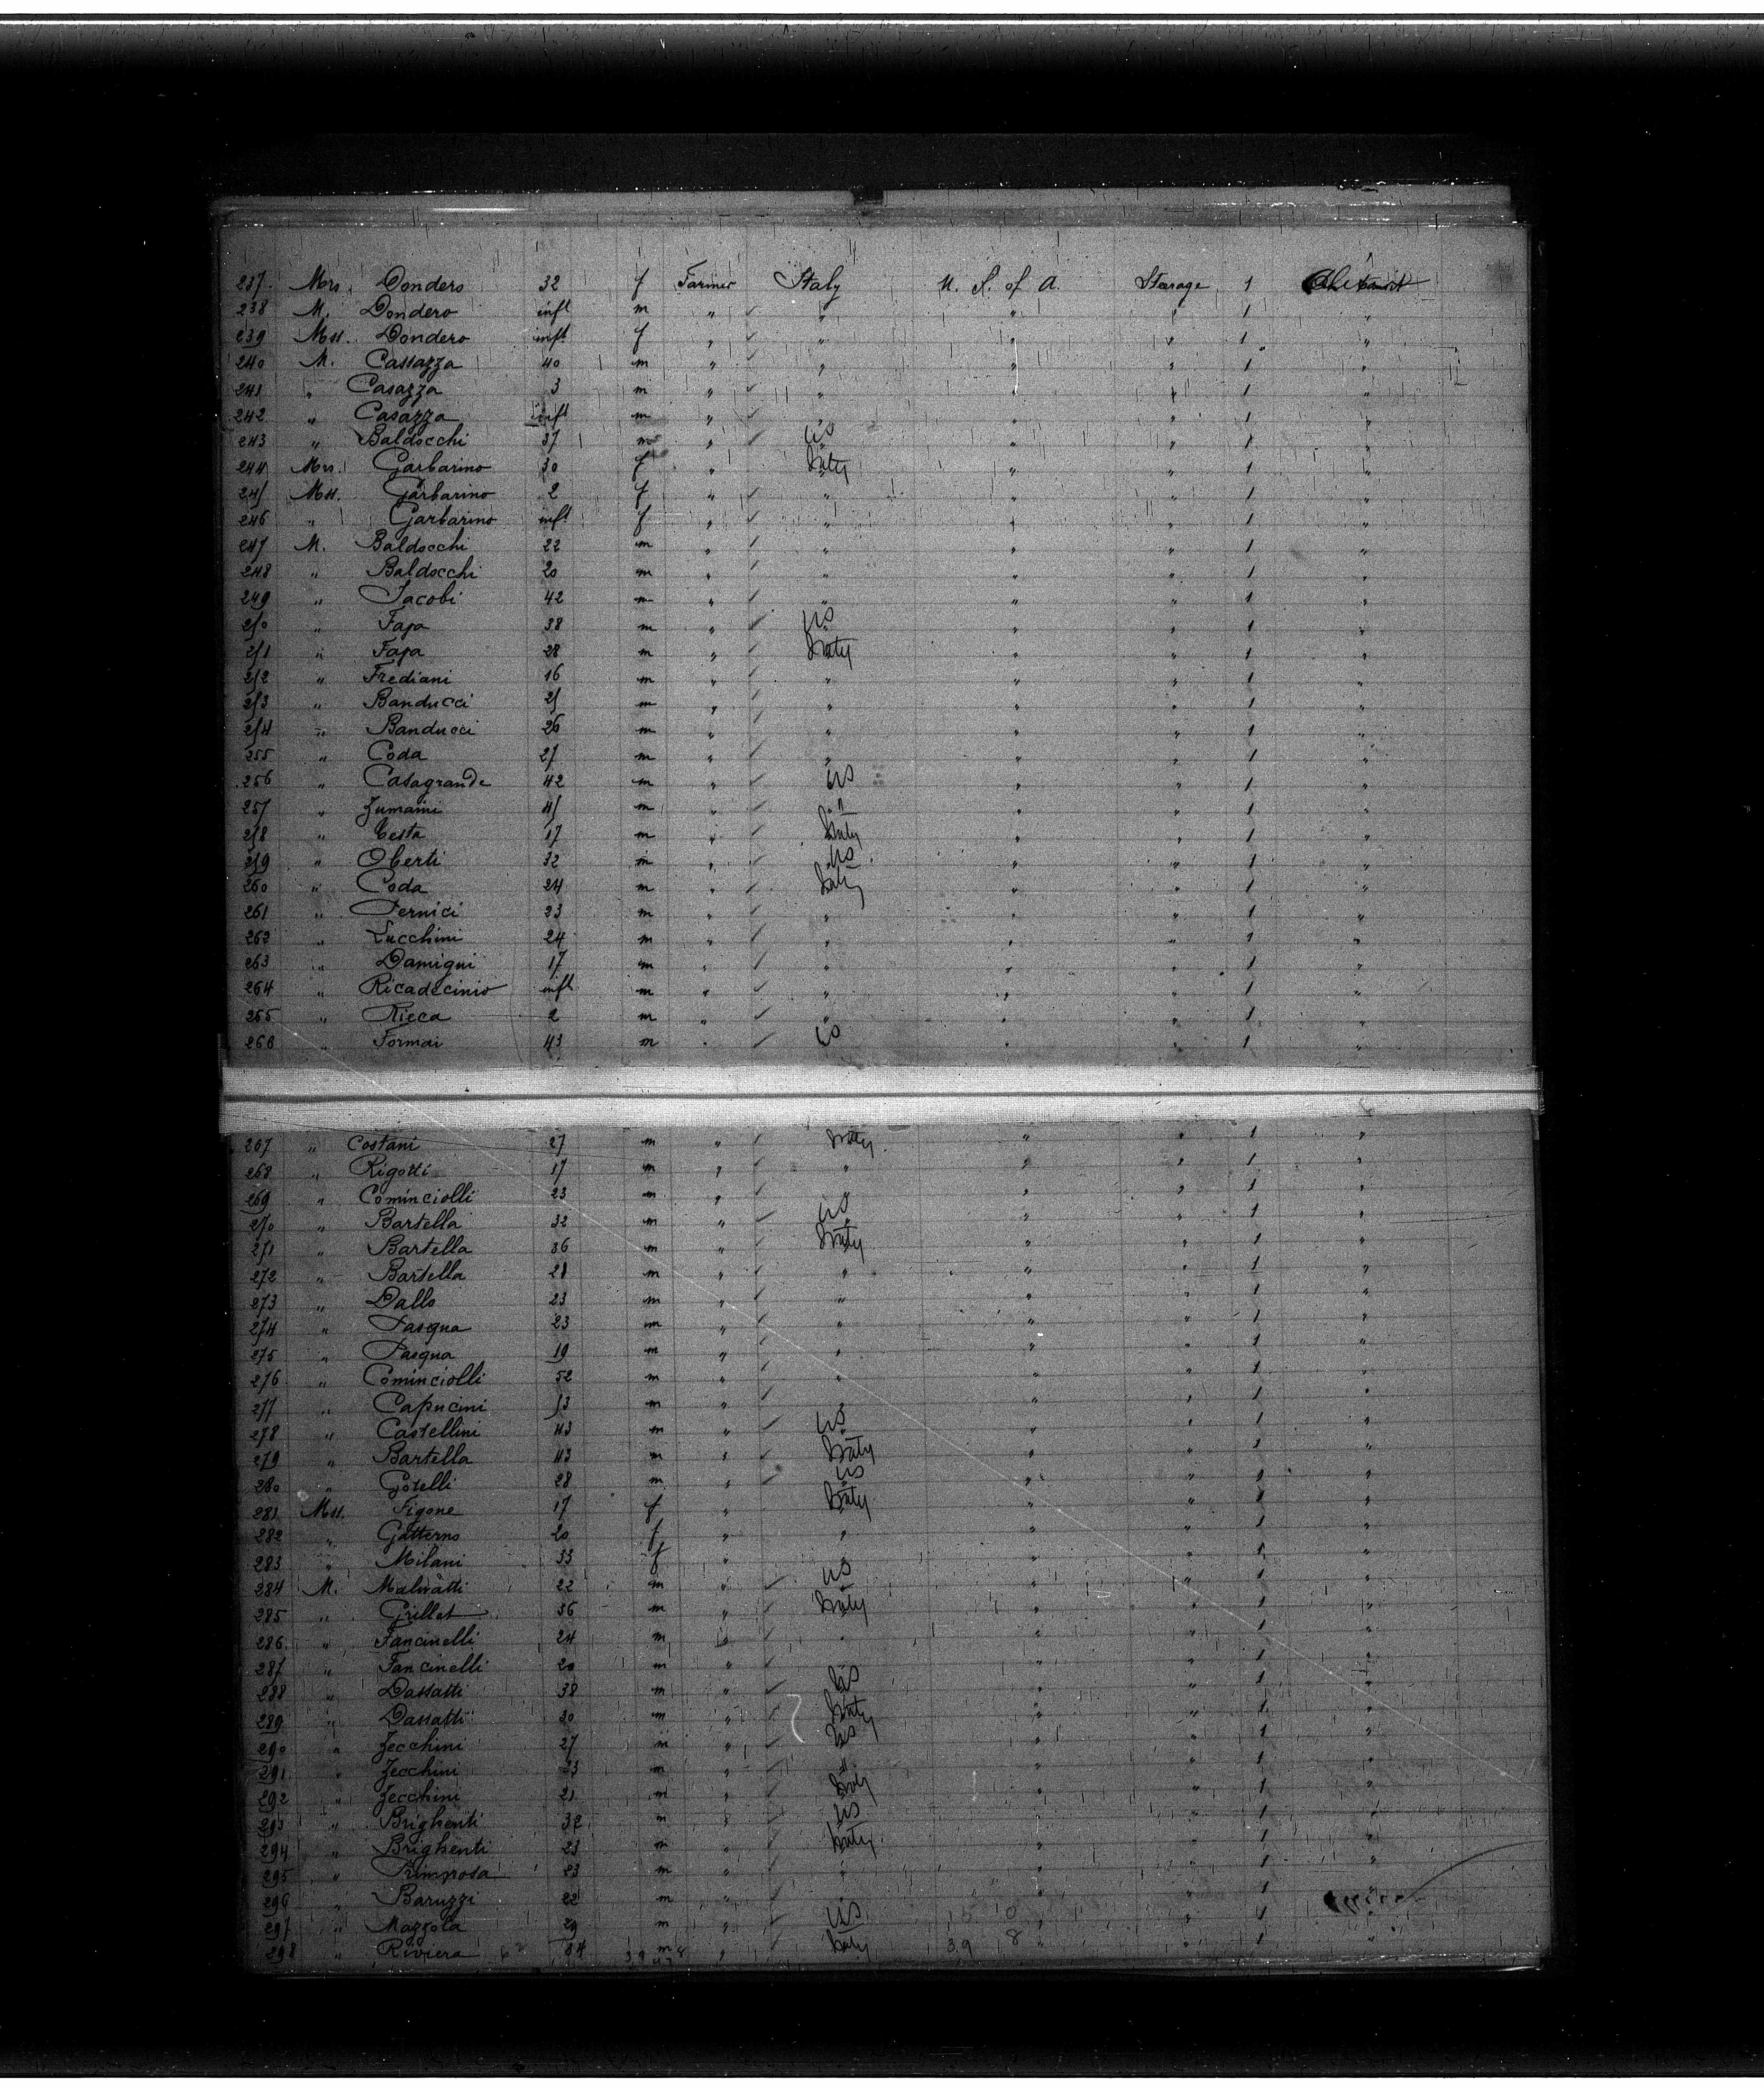 237. Mrs. Dondero 32 f Farmer Italy U. S. of A. Stearage 1
238 M. Dondero inft m " " " " 1 "
239 Mss. Dondero inft f " " " " 1 "
240 M. Cassazza 40 m " " " " 1 "
241 " Casazza 3 m " " " " 1 "
242 " Casazza inft m " " " " 1 "
243 " Baldocchi 37 m " US " " 1 "
244 Mrs. Garbarino 30 f " Italy " " 1 "
245 Mss. Garbarino 2 f " " " " 1 "
246 " Garbarino inft f " " " " 1 "
247 M. Baldocchi 22 m " " " " 1 "
248 " Baldocchi 20 m " " " " 1 "
249 " Jacobi 42 m " " " " 1 "
250 " Fapa 38 m " US " " 1 "
251 " Fapa 28 m " Italy " " 1 "
252 " Frediani 16 m " " " " 1 "
253 " Banducci 25 m " " " " 1 "
254 " Banducci 26 m " " " " 1 "
255 " Coda 27 m " " " " 1 "
256 " Casagrande 42 m " US " " 1 "
257 " Zumaini 45 m " " " " 1 "
258 " Cesta 17 m " Italy " " 1 "
259 " Oberti 32 m " US " " 1 "
260 " Coda 24 m " Italy " " 1 "
261 " Pernici 23 m " " " " 1 "
262 " Lucchini 24 m " " " " 1 "
263 " Damigni 17 m " " " " 1 "
264 " Ricadecinio inft m " " " " 1 "
265 " Ricca 2 m " " " " 1 "
266 " Formai 43 m " US " " 1 "
267 " Costani 27 m " Italy " " 1 "
268 " Rigotti 17 m " " " " 1 "
269 " Cominciolli 23 m " " " " 1 "
270 " Bartella 32 m " US " " 1 "
271 " Bartella 36 m " Italy " " 1 "
272 " Bartella 28 m " " " " 1 "
273 " Dallo 23 m " " " " 1 "
274 " Pasqua 23 m " " " " 1 "
275 " Pasqua 19 m " " " " 1 "
276 " Cominciolli 52 m " " " " 1 "
277 " Capucini 53 m " " " " 1 "
278 " Castellini 43 m " US " " 1 "
279 " Bartella 43 m " Italy " " 1 "
280 " Gotelli 28 m " US " " 1 "
281 Mss. Figone 17 f " Italy " " 1 "
282 " Gatterno 20 f " " " " 1 "
283 " Milani 33 f " " " " 1 "
284 M. Malvatti 22 m " US " " 1 "
285 " Grillat 36 m " Italy " " 1 "
286 " Fancinelli 24 m " " " " 1 "
287 " Fancinelli 20 m " " " " 1 "
288 " Dassatti 38 m " US " " 1 "
289 " Dassatti 30 m " Italy " " 1 "
290 " Zecchini 27 m " US " " 1 "
291 " Zecchini 23 m " " " " 1 "
292 " Zecchini 21 m " Italy " " 1 "
293 " Brighenti 32 m " US " " 1 "
294 " Brighenti 23 m " Italy " " 1 "
295 " Primprosa 23 m " " " " 1 "
296 " Baruzzi 22 m " " " " 1
297 " Mazzola 29 m " US " " 1 "
298 " Riviera 34 m " Italy 39 8 " " 1 "